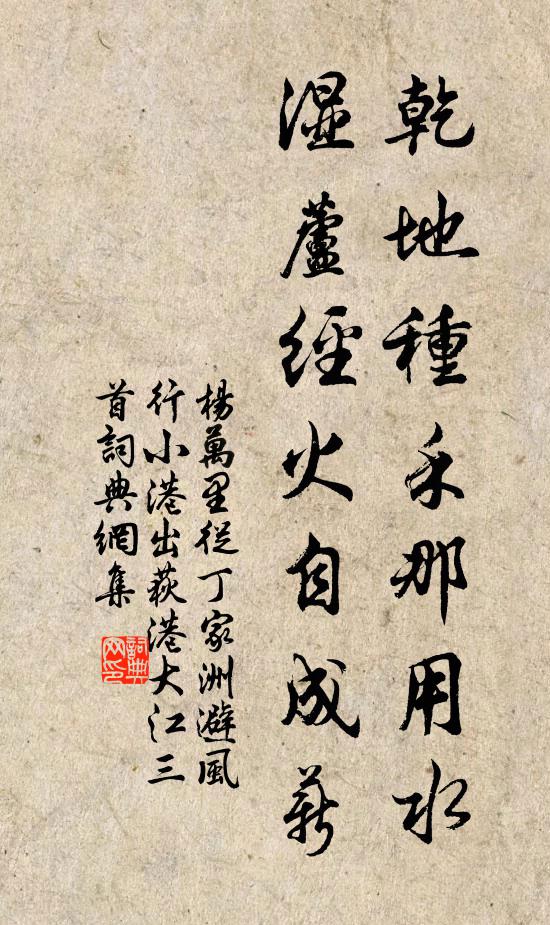 乾地種禾那用水
濕蘆經火自成薪
楊萬里從丁家洲避風
行小港出荻港大江三
首詞典網集
詞典
网印